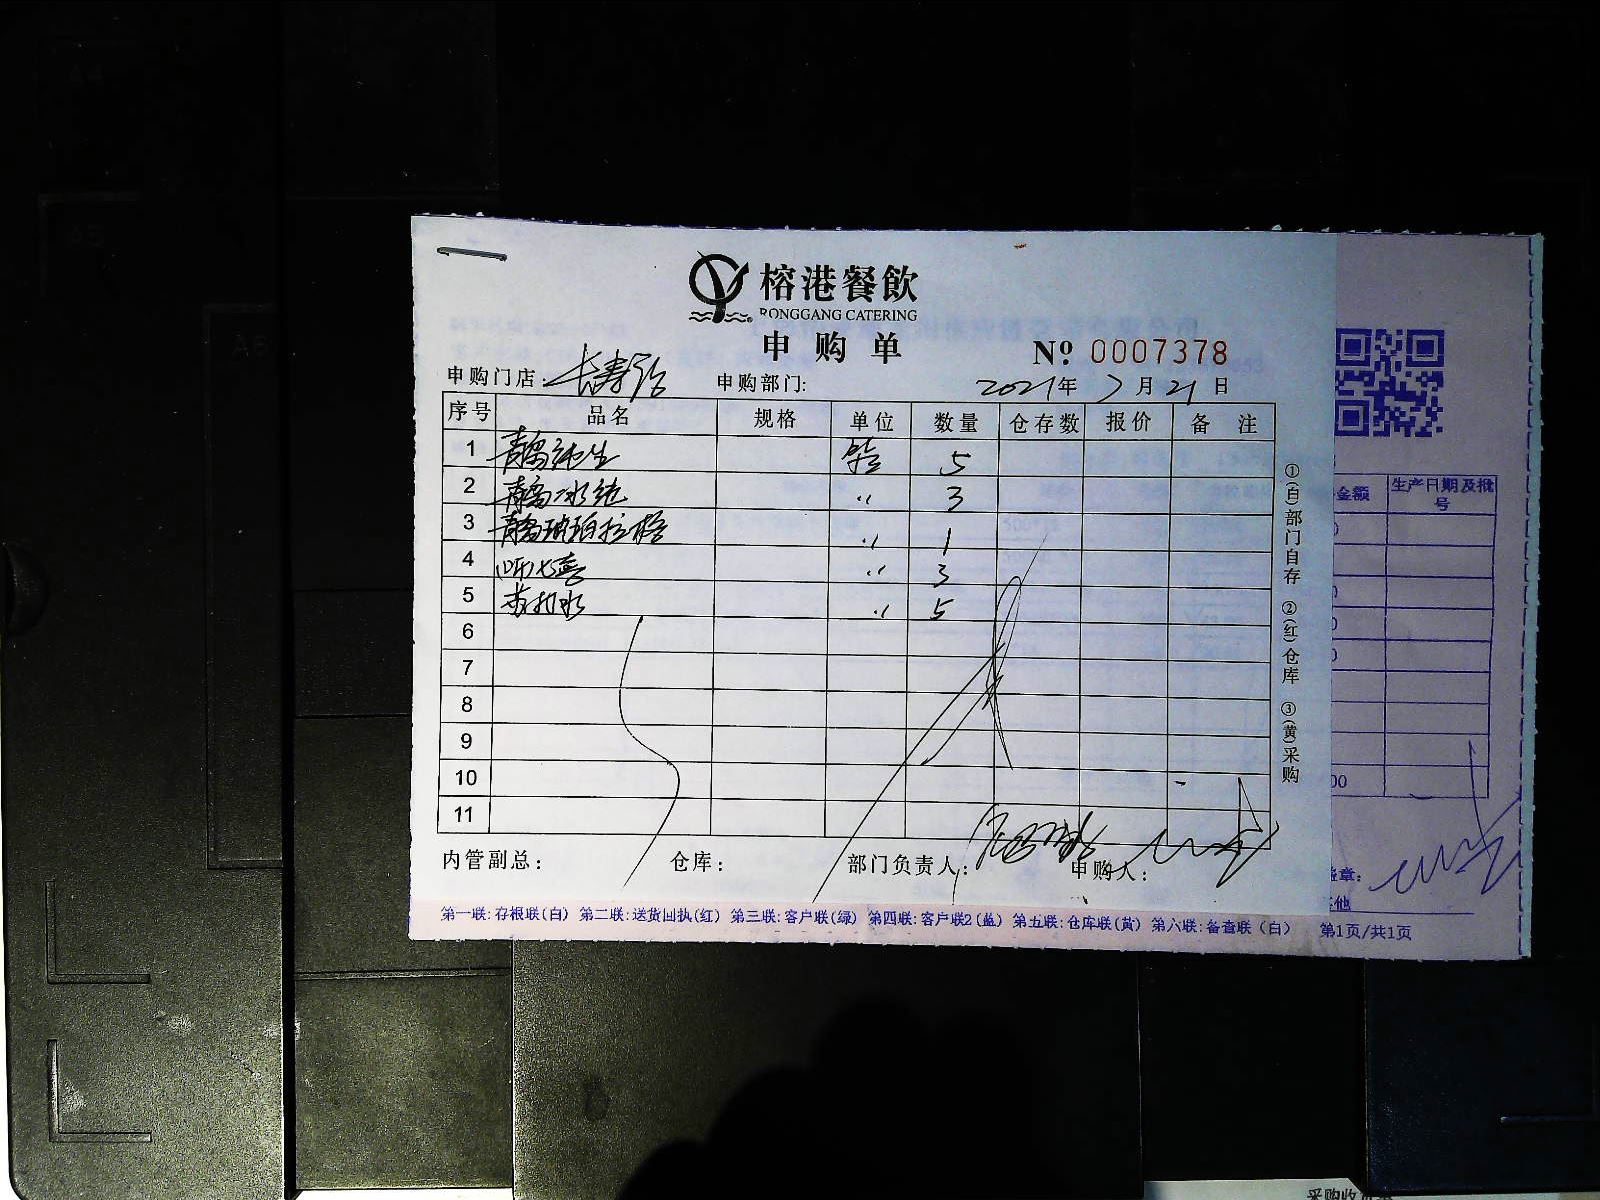 榕港餐飲
RONGGANG CATERING
申购单
№ 0007378
申购门店: 长寿路 申购部门: 2021年 7月 21日
序号 品名 规格 单位 数量 仓存数 报价 备注
1 青岛纯生 箱 5
2 青岛冰纯 〃 3
3 青岛琥珀拉格 〃 1
4 听七喜 〃 3
5 苏打水 〃 5
6
7
8
9
10
11
内管副总: 仓库: 部门负责人: 申购人:
①(白)部门自存 ②(红)仓库 ③(黄)采购
第一联:存根联(白) 第二联:送货回执(红) 第三联:客户联(绿) 第四联:客户联2(蓝) 第五联:仓库联(黄) 第六联:备查联(白) 第1页/共1页
金额 生产日期及批号
00
章:
他
A5